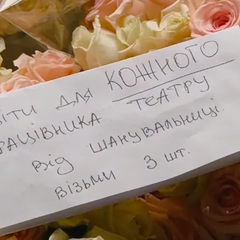 ІТИ ДЛЯ КОЖНОГО
РАЦІВНИКА ТЕАТРУ
ВІД ШАНУВАЛЬНИЦІ
ВІЗЬМИ 3 ШТ.